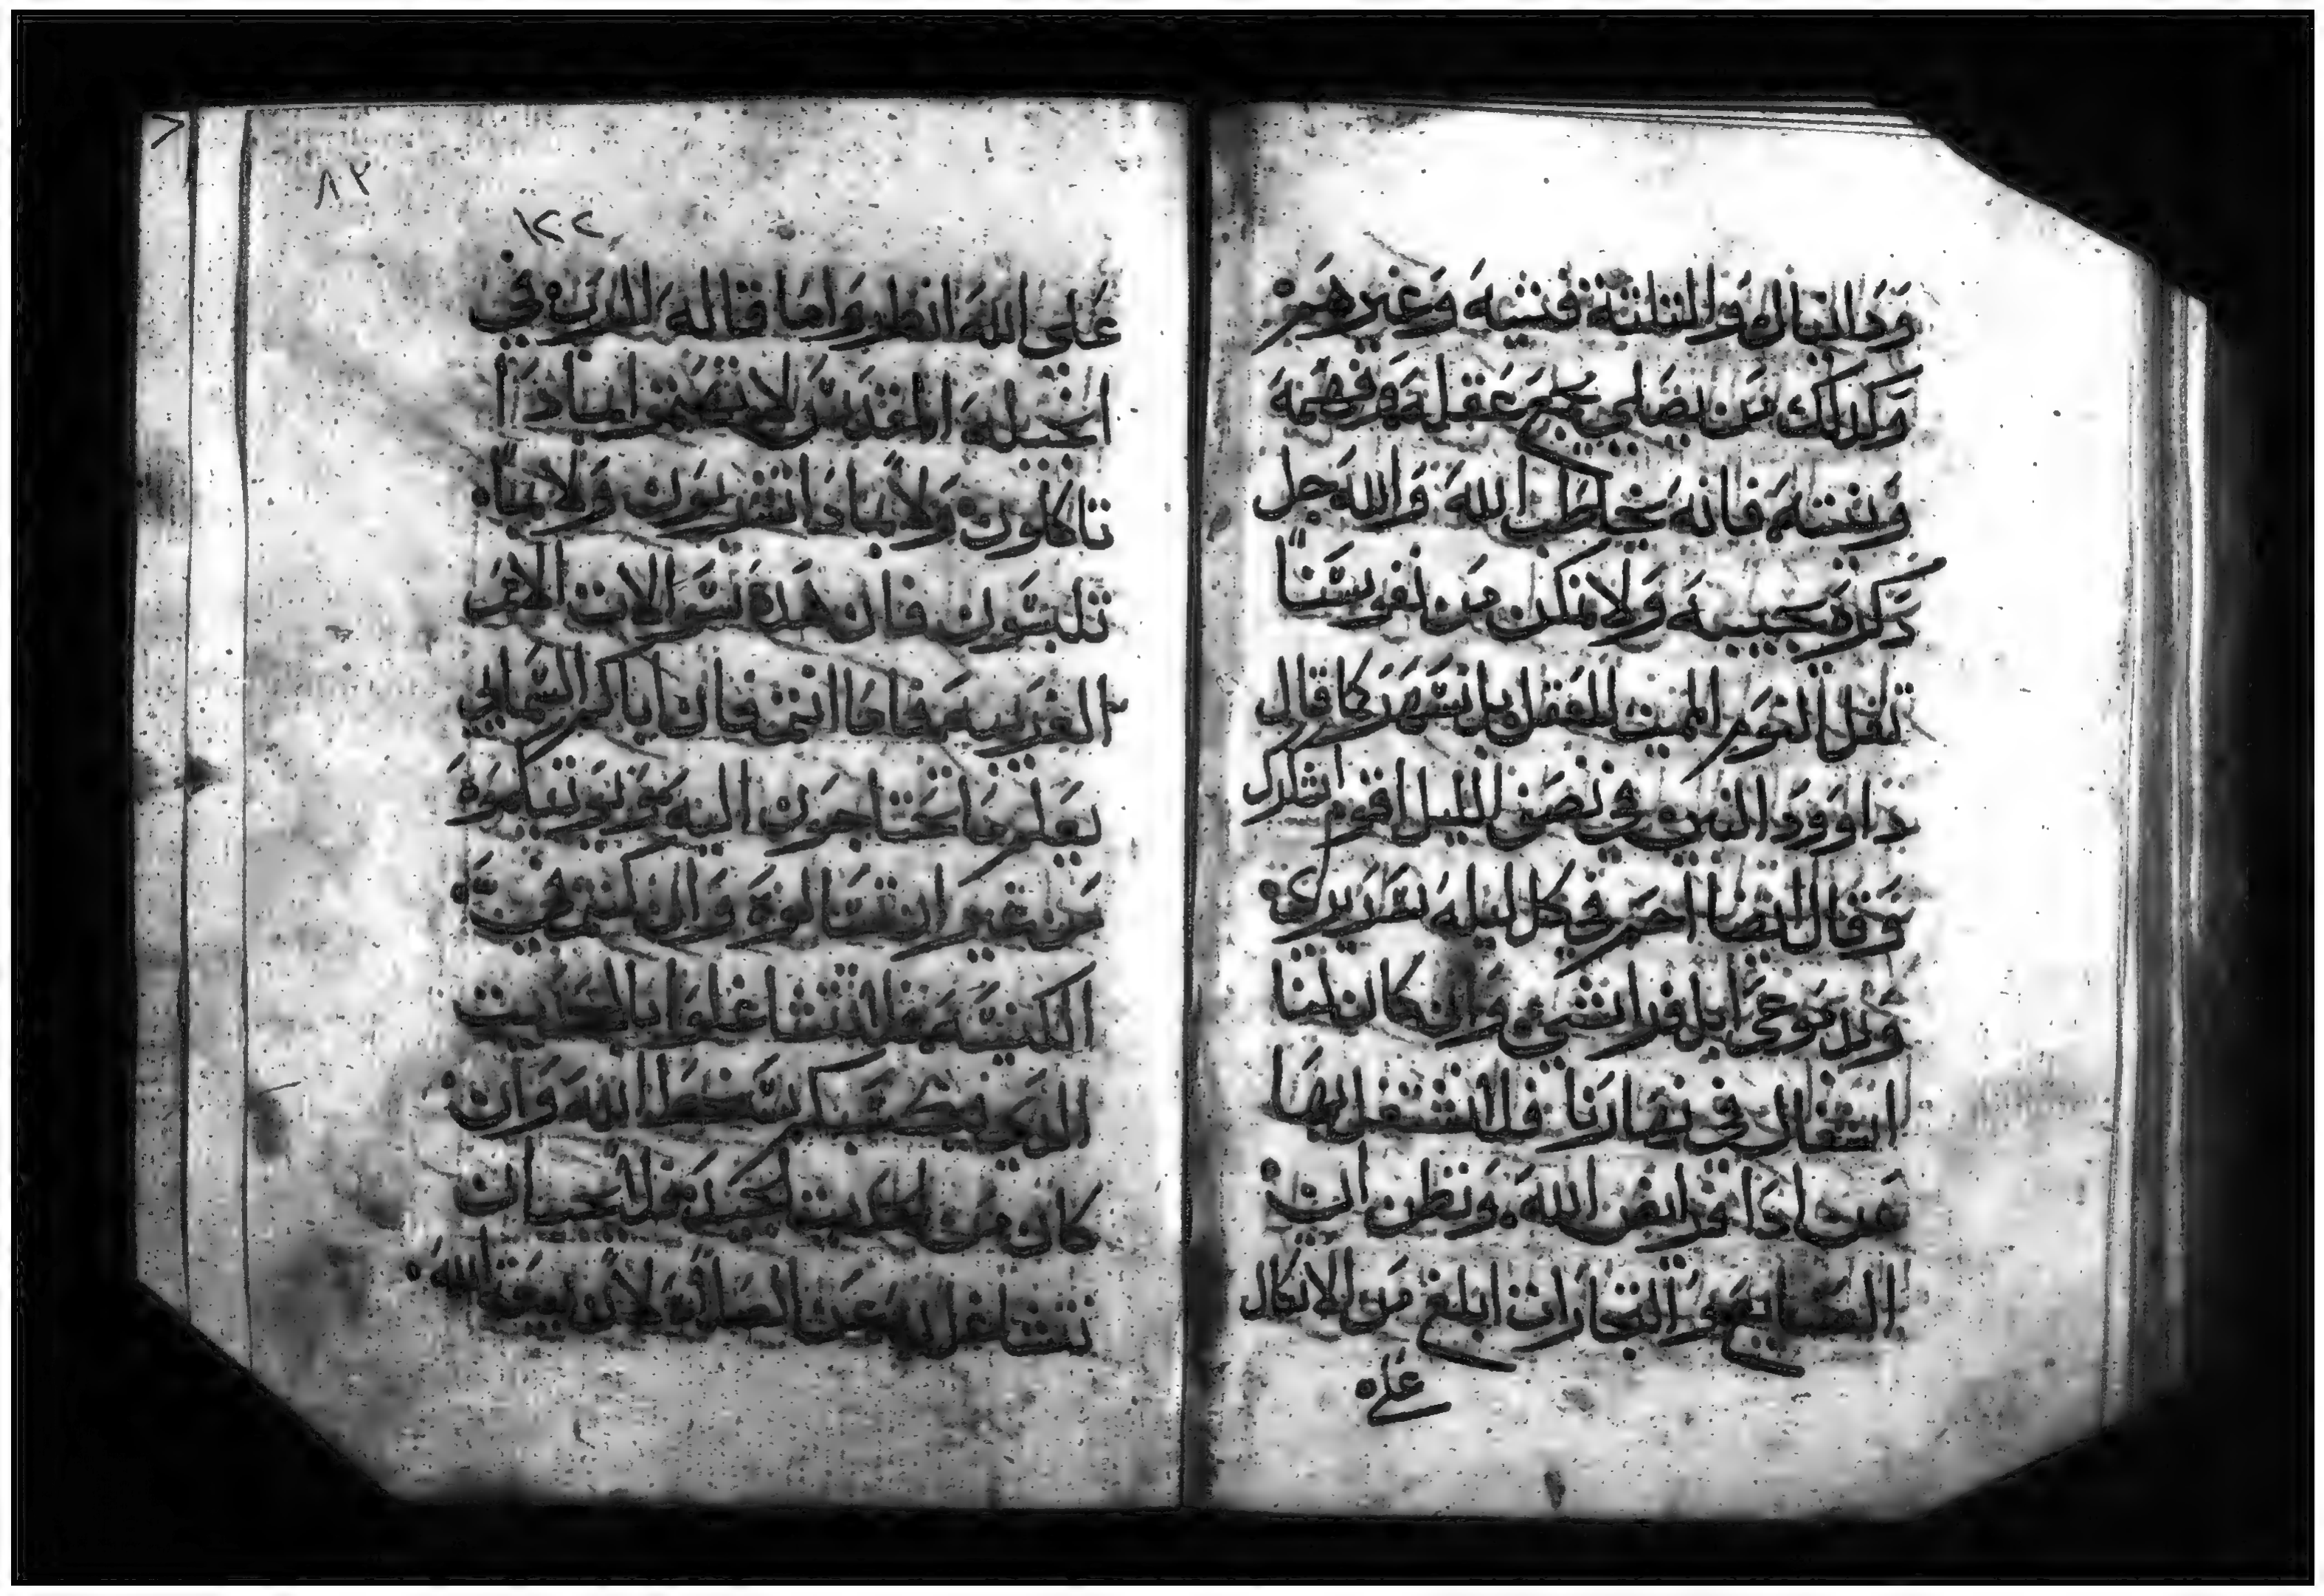 ودانيال والثلثة فتية وغيرهم
وكذلك من يصلي بجميع عقله وفهمه
ونيته فانه يخاطب الله والله جل
ذكره يجيبه ولا نمكن من نفوسنا
ثقل النوم المميت للعقل بل نسهر كما قال
داوود النبي في نصف الليل اقوم اشكرك
وقال ايضا احمم في كل ليله سريري
فراشي وان كان لنا
اشغال في نهارنا فلا نشتغل بها
الله ونظن ان
الصنايع والتجارات ابلغ من الاتكال
على
٨٢
١٢٢
على الله انظروا ما قاله الرب في
انجيله المقدس لا تهتموا بماذا
تاكلون ولا بماذا تشربون ولا بما
تلبسون فان هذه سوالات الامم
الغريبه فاما انتم فان اباكم السمايي
يعلم ما تحتاجون اليه
من قبل ان تسالوه وان كنتم في
الكنيسه فلا تتشاغلوا بالحديث
الذي يكسبكم سخط الله وان
كان من الحديث الجيد فلا يجب ان
نتشاغل به عن الصلاه لان بيعة الله